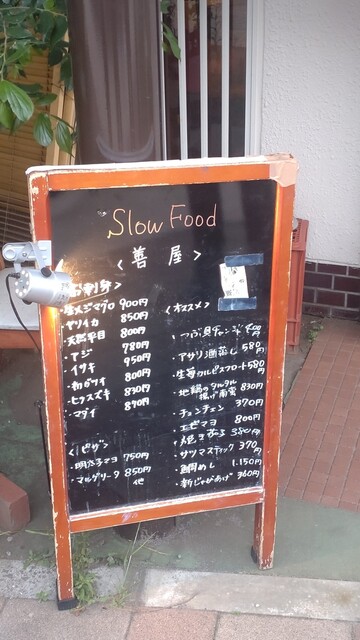 Slow Food
〈善屋〉
お刺身〉
・生メジマグロ 900円
・ヤリイカ 850円
・天然平目 800円
・アジ 780円
・イサキ 950円
・初ガツオ 800円
・ヒラスズキ 830円
・マダイ 890円
〈ピザ〉
・明太子マヨ 750円
・マルゲリータ 850円
他
〈オススメ〉
・つぶ貝 400円
・アサリ酒蒸し 580円
580円
・地鶏のタルタル 830円
揚げ南蛮
・チョンチェン 370円
・エビマヨ 800円
・焼き 380円
・サツマスティック 370円
・鯛めし 1.150円
・新じゃがあげ 360円